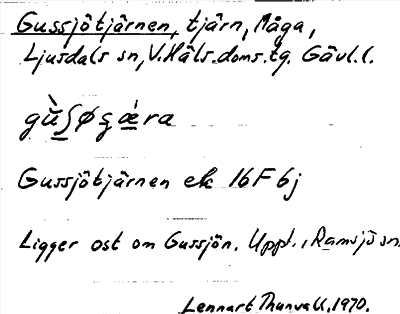 Gussjötjärnen, tjärn, Måga,
Ljusdals sn, V.Häls. doms. tg. Gävl.l.
Gussjötjärnen ek 16F 6j
Ligger ost om Gussjön. Uppt., Ramsjö sn.
Lennart Thunvall, 1970.